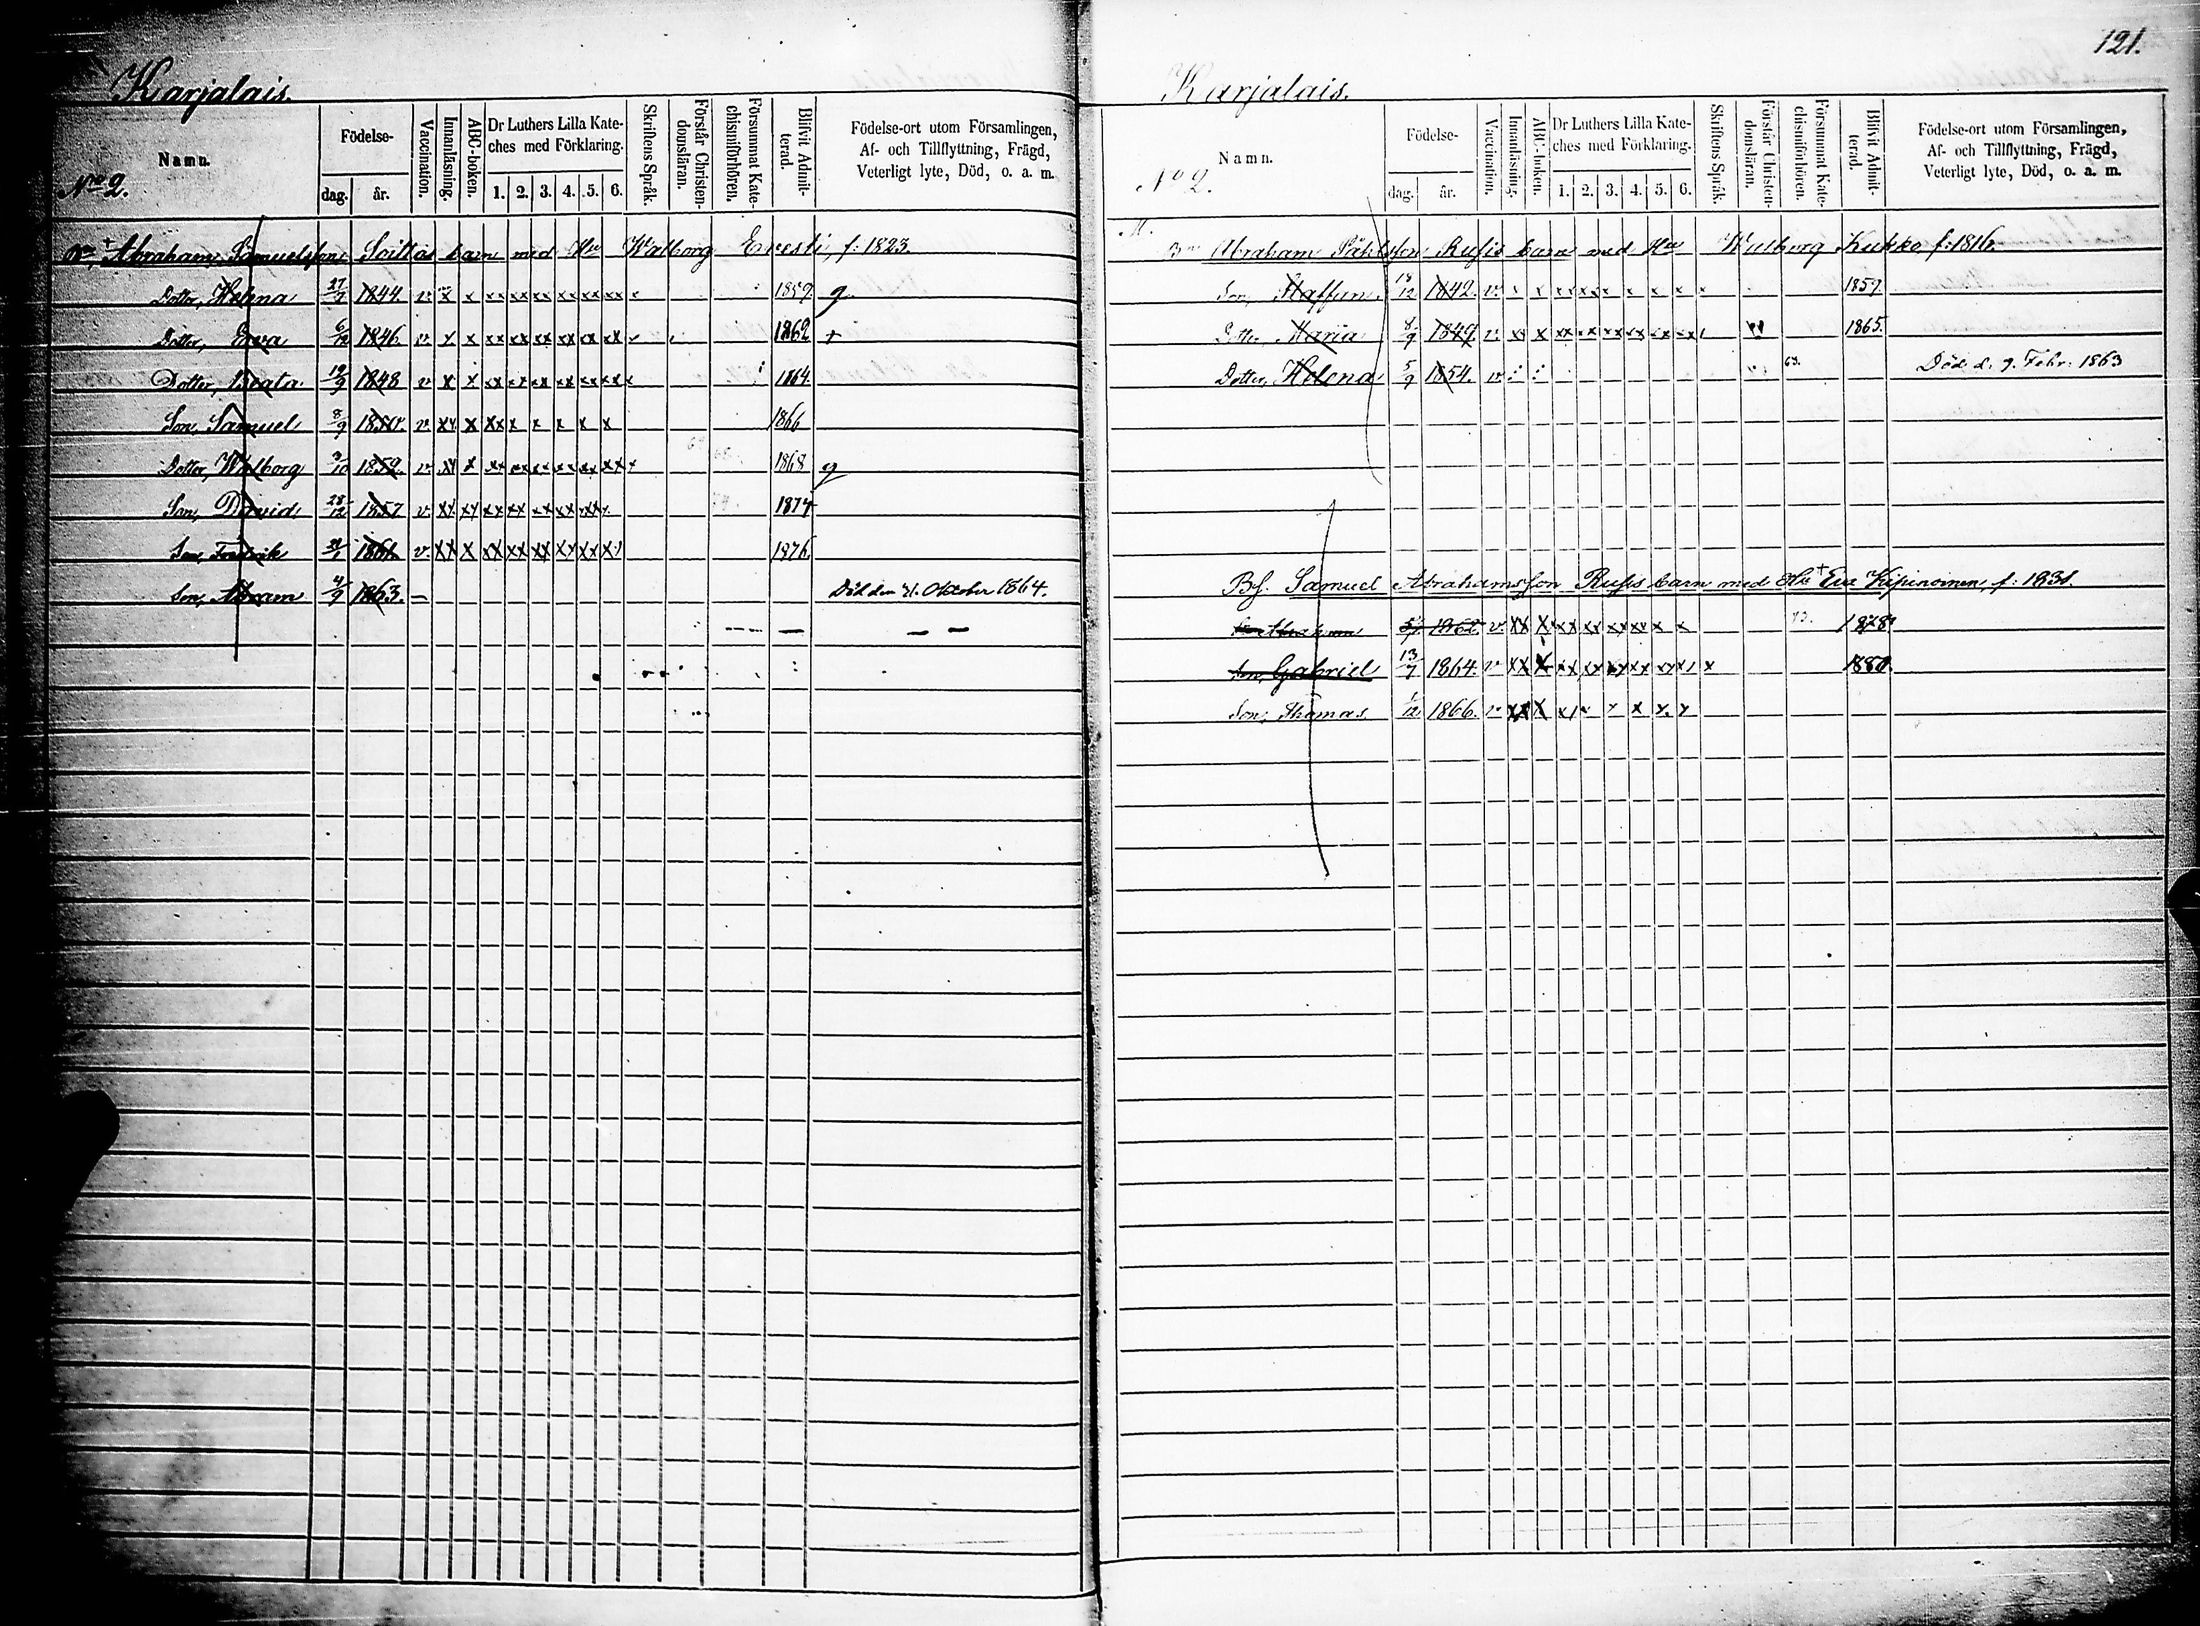 Karjalais.
No 2.
Namn.
Födelse-
dag. år.
Vaccination.
Innanläsning.
ABC-boken.
Dr Luthers Lilla Kate-
ches med Förklaring.
1. 2. 3. 4. 5. 6.
Skriftens Språk.
Förstår Christen-
domsläran.
Försummat Kate-
chismiförhören.
Blifvit Admit-
terad.
Födelse-ort utom Församlingen,
Af- och Tillflyttning, Frägd,
Veterligt lyte, Död, o. a. m.
Abraham Samuelsson Soittas barn med Hu Walborg Eresti, f: 1823.
Dotter, Helena 27/7 1844. v x x xx xx xx xx xx xx x 1859 g
Dotter, Eva 6/12 1846 v x x xx xx xx xx xx xx 1862 +
Dotter, Beata 19/9 1848 v x x xx xx xx xx xx xx x 1864.
Son, Samuel 8/9 1850. v xx x xx x x x x x 1866
Dotter, Walborg 3/10 1852. v xx x xx xx xx xx xx xx x 1868 g
Son, David 28/12 1857 v xx xx xx xx xx xx xx x 1874
Son, Fredrik 1861 v. xx x xx xx xx xx xx x 1876
Son, Abram 4/9 1863. – Död den 21. Oktober 1864.
121.
Karjalais.
No 2.
Namn.
Födelse-
dag. år.
Vaccination.
Innanläsning.
ABC-boken.
Dr Luthers Lilla Kate-
ches med Förklaring.
1. 2. 3. 4. 5. 6.
Skriftens Språk.
Förstår Christen-
domsläran.
Försummat Kate-
chismiförhören.
Blifvit Admit-
terad.
Födelse-ort utom Församlingen,
Af- och Tillflyttning, Frägd,
Veterligt lyte, Död, o. a. m.
M.
Abraham Påhlsson Rusis barn med Hu Walborg Kukko f: 1816.
Son, Staffan. 18/12 1842. v. x x xx xx x x x x x 1859.
Dotter, Maria 8/9 1849. v xx x xx xx xx xx xx xx 1865.
Dotter, Helena 5/9 1854. v 63. Död d. 9. Febr. 1863
Bf. Samuel Abrahamsson Rusis barn med Hu + Eva Kipinoinen, f: 1831.
Son Abraham 1862. v xx x xx xx xx xx x x 73. 1878
Son, Gabriel 13/7 1864. v xx x xx xx xx xx xx x x 1880.
Son, Thomas 1/12 1866. v xx x x x x x x